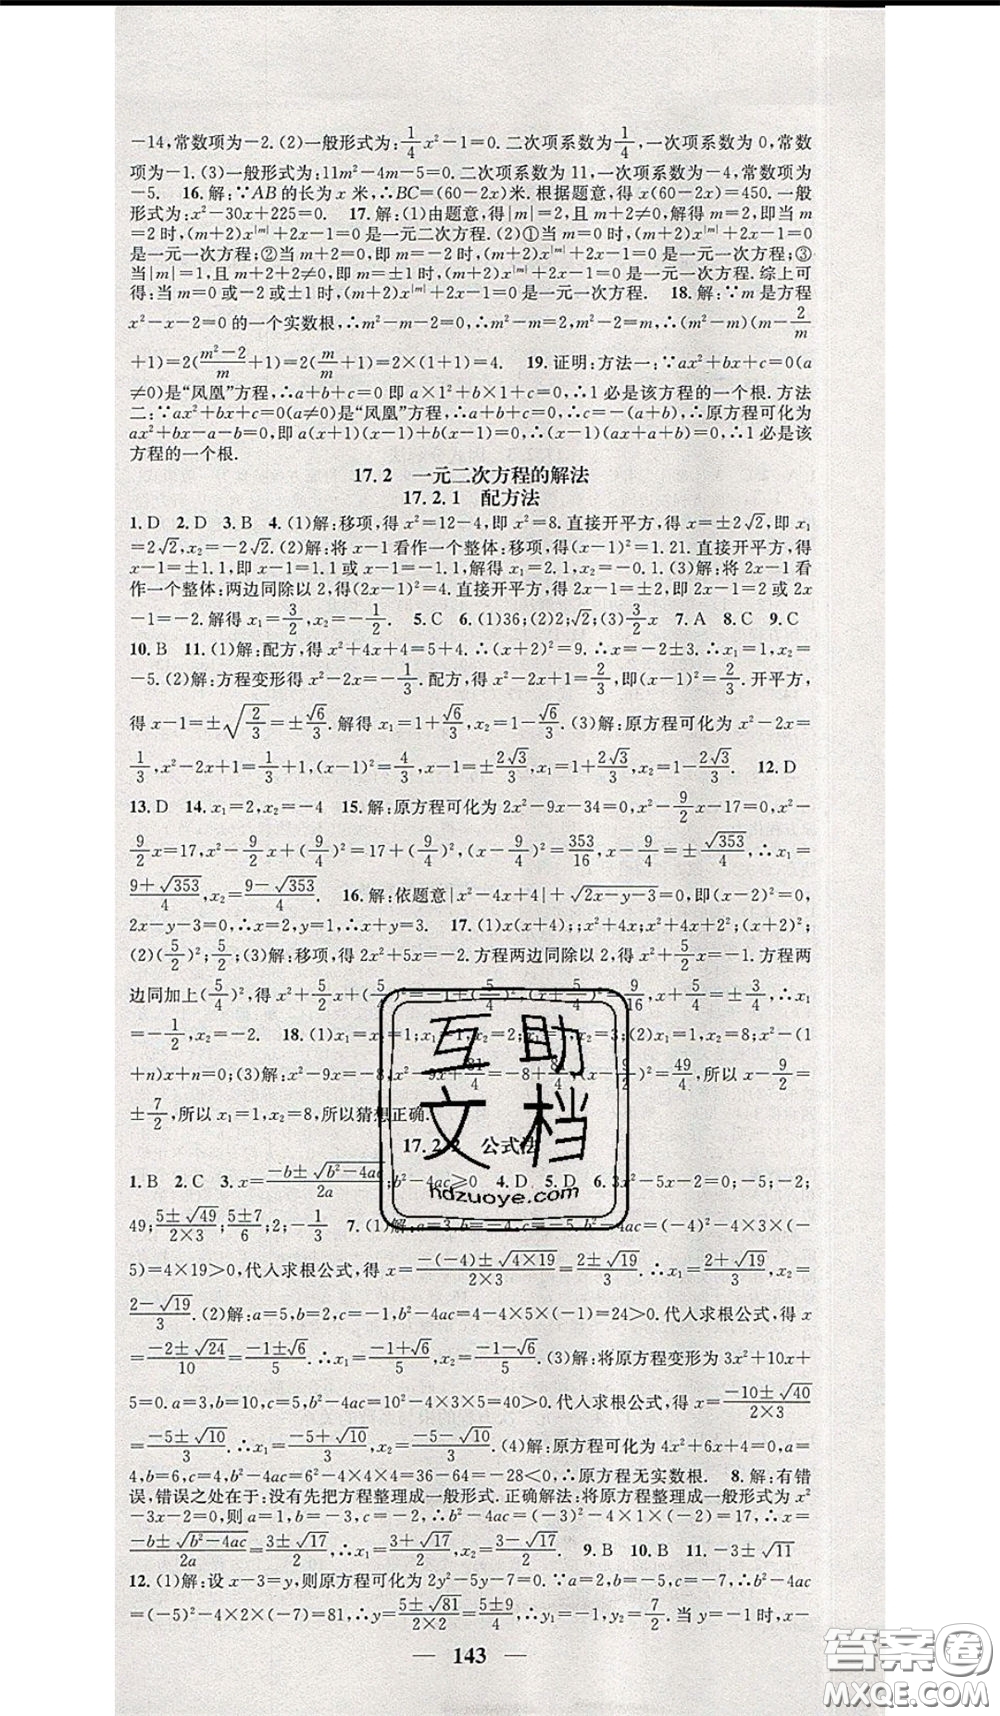 -14,常数项为-2.(2)一般形式为:1/4x²-1=0.二次项系数为1/4,一次项系数为0,常数
项为-1.(3)一般形式为:11m²-4m-5=0.二次项系数为11,一次项系数为-4,常数项为
-5. 16.解:∵AB的长为x米,∴BC=(60-2x)米.根据题意,得x(60-2x)=450.一般
形式为:x²-30x+225=0. 17.解:(1)由题意,得|m|=2,且m+2≠0,解得m=2,即当m
=2时,(m+2)x^|m|+2x-1=0是一元二次方程.(2)①当m=0时,(m+2)x^|m|+2x-1=0
是一元一次方程;②当m+2=0,即m=-2时,(m+2)x^|m|+2x-1=0是一元一次方程;③
当|m|=1,且m+2+2≠0,即m=±1时,(m+2)x^|m|+2x-1=0是一元一次方程.综上可
得:当m=0或-2或±1时,(m+2)x^|m|+2x-1=0是一元一次方程. 18.解:∵m是方程
x²-x-2=0的一个实数根,∴m²-m-2=0,∴m²-m=2,m²-2=m,∴(m²-m)(m-2/m
+1)=2((m²-2)/m+1)=2(m/m+1)=2×(1+1)=4. 19.证明:方法一:∵ax²+bx+c=0(a
≠0)是“凤凰”方程,∴a+b+c=0即a×1²+b×1+c=0,∴1必是该方程的一个根.方法
二:∵ax²+bx+c=0(a≠0)是“凤凰”方程,∴a+b+c=0,∴c=-(a+b),∴原方程可化为
ax²+bx-a-b=0,即a(x+1)(x-1)+b(x-1)=0,∴(x-1)(ax+a+b)=0,∴1必是该
方程的一个根.
17.2 一元二次方程的解法
17.2.1 配方法
1.D 2.D 3.B 4.(1)解:移项,得x²=12-4,即x²=8.直接开平方,得x=±2√2,即x₁
=2√2,x₂=-2√2.(2)解:将x-1看作一个整体:移项,得(x-1)²=1.21.直接开平方,得
x-1=±1.1,即x-1=1.1或x-1=-1.1,解得x₁=2.1,x₂=-0.1.(3)解:将2x-1看
作一个整体:两边同除以2,得(2x-1)²=4.直接开平方,得2x-1=±2,即2x-1=2或2x
-1=-2.解得x₁=3/2,x₂=-1/2. 5.C 6.(1)36;(2)2;√2;(3)3/2x 7.A 8.C 9.C
10.B 11.(1)解:配方,得x²+4x+4=5+4.∴(x+2)²=9.∴x=-2±3.∴x₁=1,x₂=
-5.(2)解:方程变形得x²-2x=-1/3.配方,得x²-2x+1=2/3,即(x-1)²=2/3.开平方,
得x-1=±√(2/3)=±√6/3.解得x₁=1+√6/3,x₂=1-√6/3.(3)解:原方程可化为x²-2x=
1/3,x²-2x+1=1/3+1,(x-1)²=4/3,x-1=±2√3/3,x₁=1+2√3/3,x₂=1-2√3/3. 12.D
13.D 14.x₁=2,x₂=-4 15.解:原方程可化为2x²-9x-34=0,x²-9/2x-17=0,x²-
9/2x=17,x²-9/2x+(9/4)²=17+(9/4)²,(x-9/4)²=353/16,x-9/4=±√353/4,∴x₁=
(9+√353)/4,x₂=(9-√353)/4. 16.解:依题意|x²-4x+4|+√(2x-y-3)=0,即(x-2)²=0,
2x-y-3=0,∴x=2,y=1,∴x+y=3. 17.(1)x(x+4);;x²+4x;x²+4x+2²;(x+2)²;
(2)(5/2)²;5/2;(3)解:移项,得2x²+5x=-2.方程两边同除以2,得x²+5/2x=-1.方程两
边同加上(5/4)²,得x²+5/2x+(5/4)²=-1+(5/4)²,(x+5/4)²=9/16,x+5/4=±3/4,∴x₁
=-1/2,x₂=-2. 18.(1)x₁=x₂=1;x₁=1,x₂=2;x₁=1,x₂=3;(2)x²-(1
+n)x+n=0;(3)解:x²-9x=-8,x²-9x+81/4=-8+81/4,(x-9/2)²=49/4,所以x-9/2=
±7/2,所以x₁=1,x₂=8,所以猜想正确.
17.2.2 公式法
1.B 2.C 3.x=(-b±√(b²-4ac))/2a;b²-4ac≥0 4.D 5.D 6.3x²-5x-2=0;-5;-2;
49;(5±√49)/(2×3);(5±7)/6;2;-1/3 7.(1)解:a=3,b=-4,c=-5,b²-4ac=(-4)²-4×3×(-
5)=4×19>0,代入求根公式,得x=(-(-4)±√(4×19))/(2×3)=(2±√19)/3.∴x₁=(2+√19)/3,x₂=
(2-√19)/3.(2)解:a=5,b=2,c=-1,b²-4ac=4-4×5×(-1)=24>0.代入求根公式,得x
=(-2±√24)/10=(-1±√6)/5.∴x₁=(-1+√6)/5,x₂=(-1-√6)/5.(3)解:将原方程变形为3x²+10x+
5=0.a=3,b=10,c=5,∴b²-4ac=10²-4×3×5=40>0.代入求根公式,得x=(-10±√40)/(2×3)
=(-5±√10)/3.∴x₁=(-5+√10)/3,x₂=(-5-√10)/3.(4)解:原方程可化为4x²+6x+4=0,a=
4,b=6,c=4,∴b²-4ac=6²-4×4×4=36-64=-28<0,∴原方程无实数根. 8.解:有错
误,错误之处在于:没有先把方程整理成一般形式.正确解法:将原方程整理成一般形式为x²
-3x-2=0,则a=1,b=-3,c=-2,∴b²-4ac=(-3)²-4×1×(-2)=17,∴x=
(-b±√(b²-4ac))/2a=(3±√17)/2,∴x₁=(3+√17)/2,x₂=(3-√17)/2. 9.B 10.B 11.-3±√11
12.(1)解:设x-3=y,则原方程可化为2y²-5y-7=0.∵a=2,b=-5,c=-7,∴b²-4ac
=(-5)²-4×2×(-7)=81,∴y=(5±√81)/(2×2)=(5±9)/4,∴y₁=-1,y₂=7/2.当y=-1时,x-
— 143 —
互助
文档
hdzuoye.com
答案卷
MXQE.COM